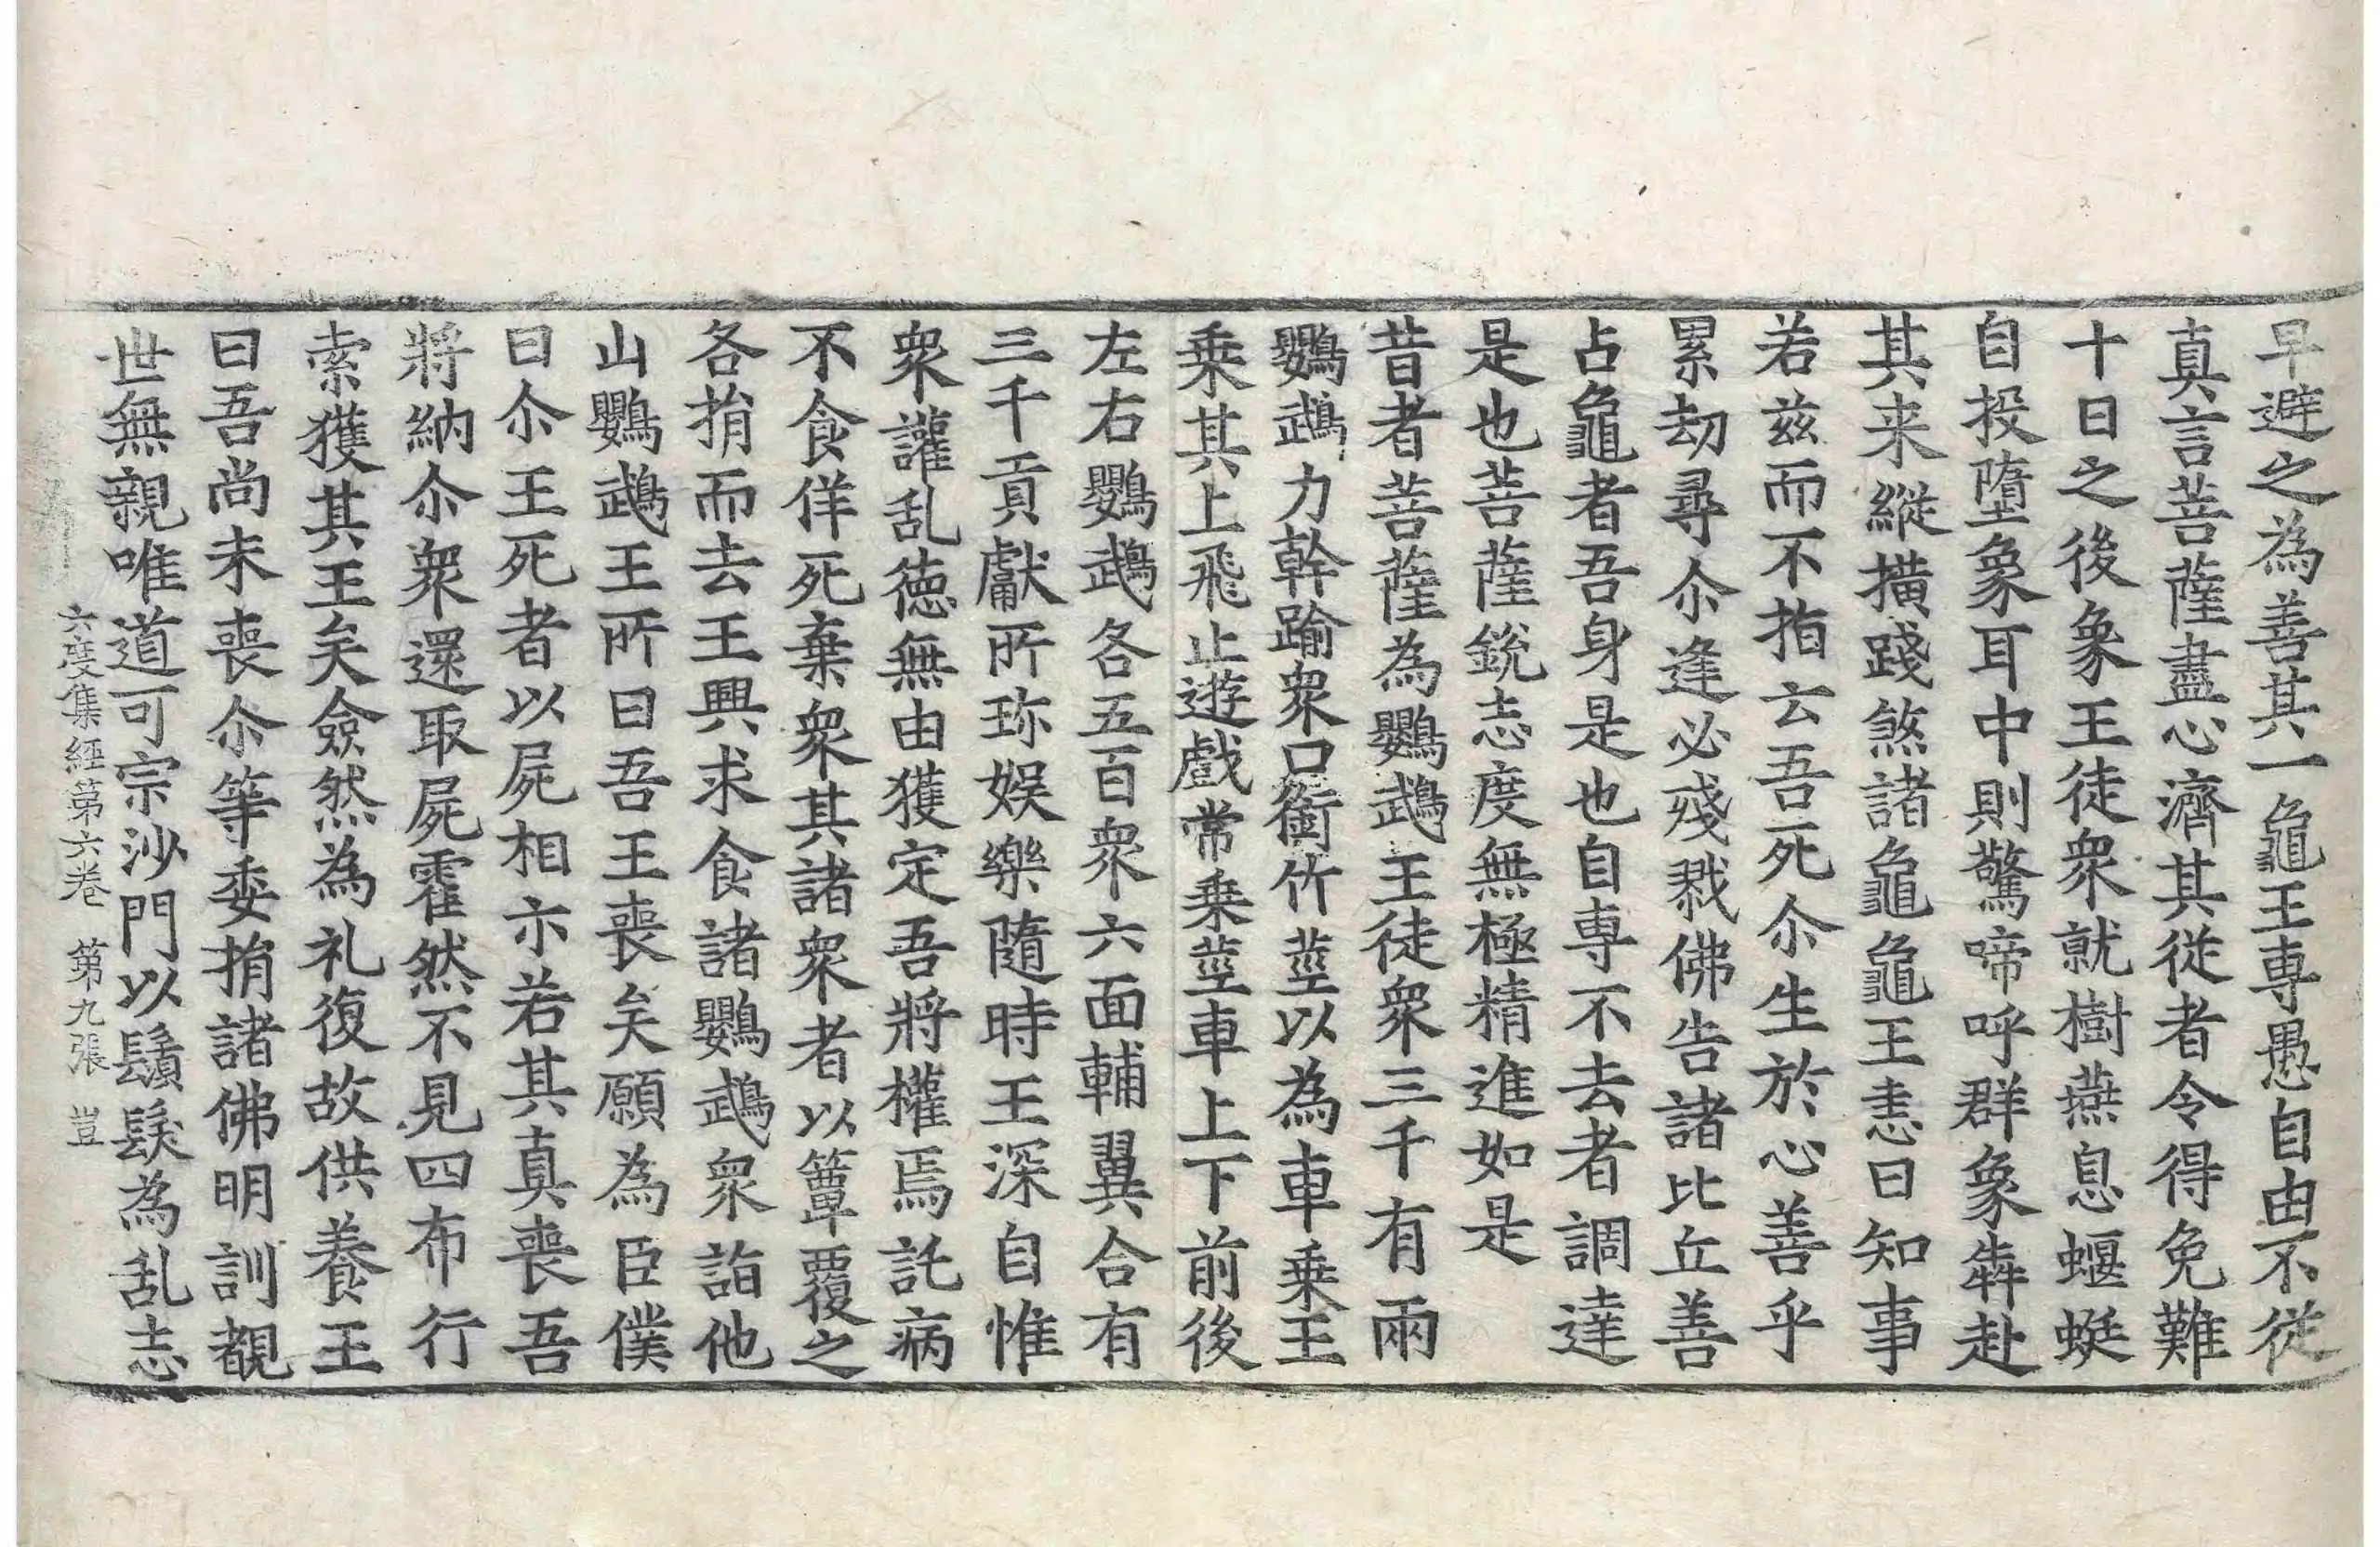 早避之為善其一龜王専愚自由不從
真言菩薩盡心濟其従者令得免難
十日之後象王徒衆就樹燕息蝘蜓
自投墮象耳中則驚啼呼群象犇赴
其来縱橫踐煞諸龜龜王恚曰知事
若兹而不指云吾死尒生於心善乎
累劫尋尒逢必殘戮佛告諸比丘善
占龜者吾身是也自専不去者調達
是也菩薩銳志度無極精進如是
昔者菩薩為鸚鵡王徒衆三千有兩
鸚鵡力幹踰衆口銜竹莖以為車乗王
乗其上飛止遊戲常乗莖車上下前後
左右鸚鵡各五百衆六面輔翼合有
三千貢獻所珎娛樂隨時王深自惟
衆讙乱徳無由獲定吾將權焉託病
不食佯死棄衆其諸衆者以簟覆之
各捐而去王興求食諸鸚鵡衆詣他
山鸚鵡王所曰吾王喪矣願為臣僕
曰尒王死者以屍相示若其真喪吾
將納尒衆還取屍霍然不見四布行
索獲其王矣僉然為礼復故供養王
曰吾尚未喪尒等委捐諸佛明訓覩
世無親唯道可宗沙門以鬚髮為乱志
六度集經第六卷 第九張 豈